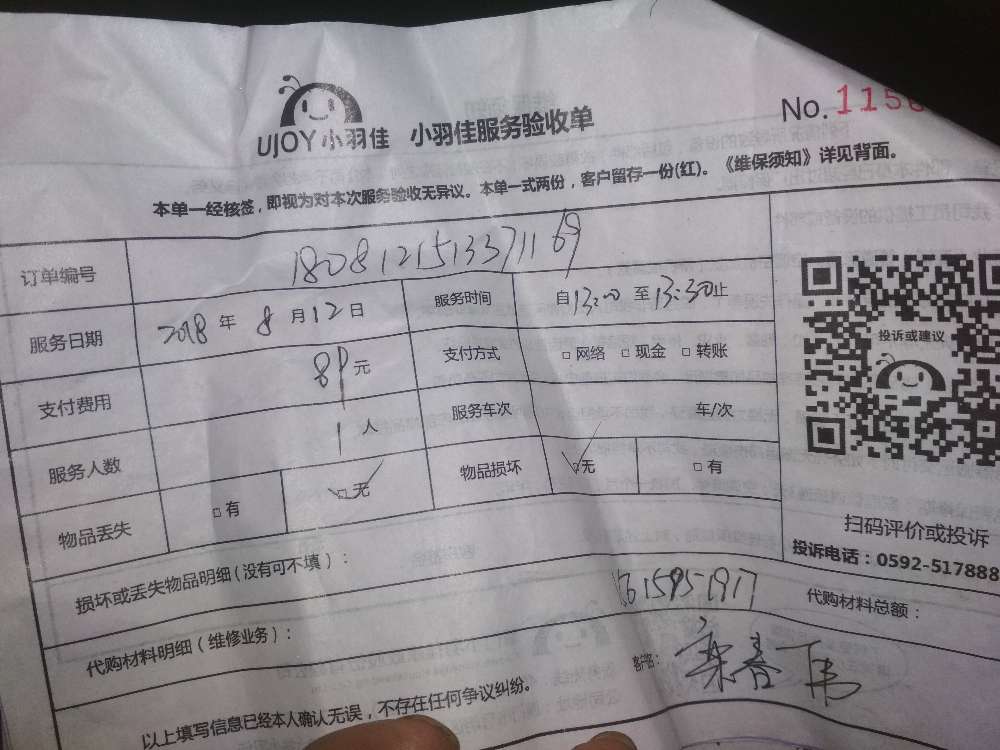 UJOY小羽佳 小羽佳服务验收单 No.115
本单一经核签，即视为对本次服务验收无异议。本单一式两份，客户留存一份(红)。《维保须知》详见背面。
订单编号 1808121513371169
服务日期 2018 年 8 月 12 日 服务时间 自 13:00 至 13:30 止
支付费用 89 元 支付方式 □ 网络 □ 现金 □ 转账
服务人数 1 人 服务车次 车/次
物品丢失 □ 有 □ 无 物品损坏 □ 无 □ 有
投诉或建议
扫码评价或投诉
投诉电话：0592-517888
损坏或丢失物品明细(没有可不填)：
代购材料明细(维修业务)： 代购材料总额：
以上填写信息已经本人确认无误，不存在任何争议纠纷。